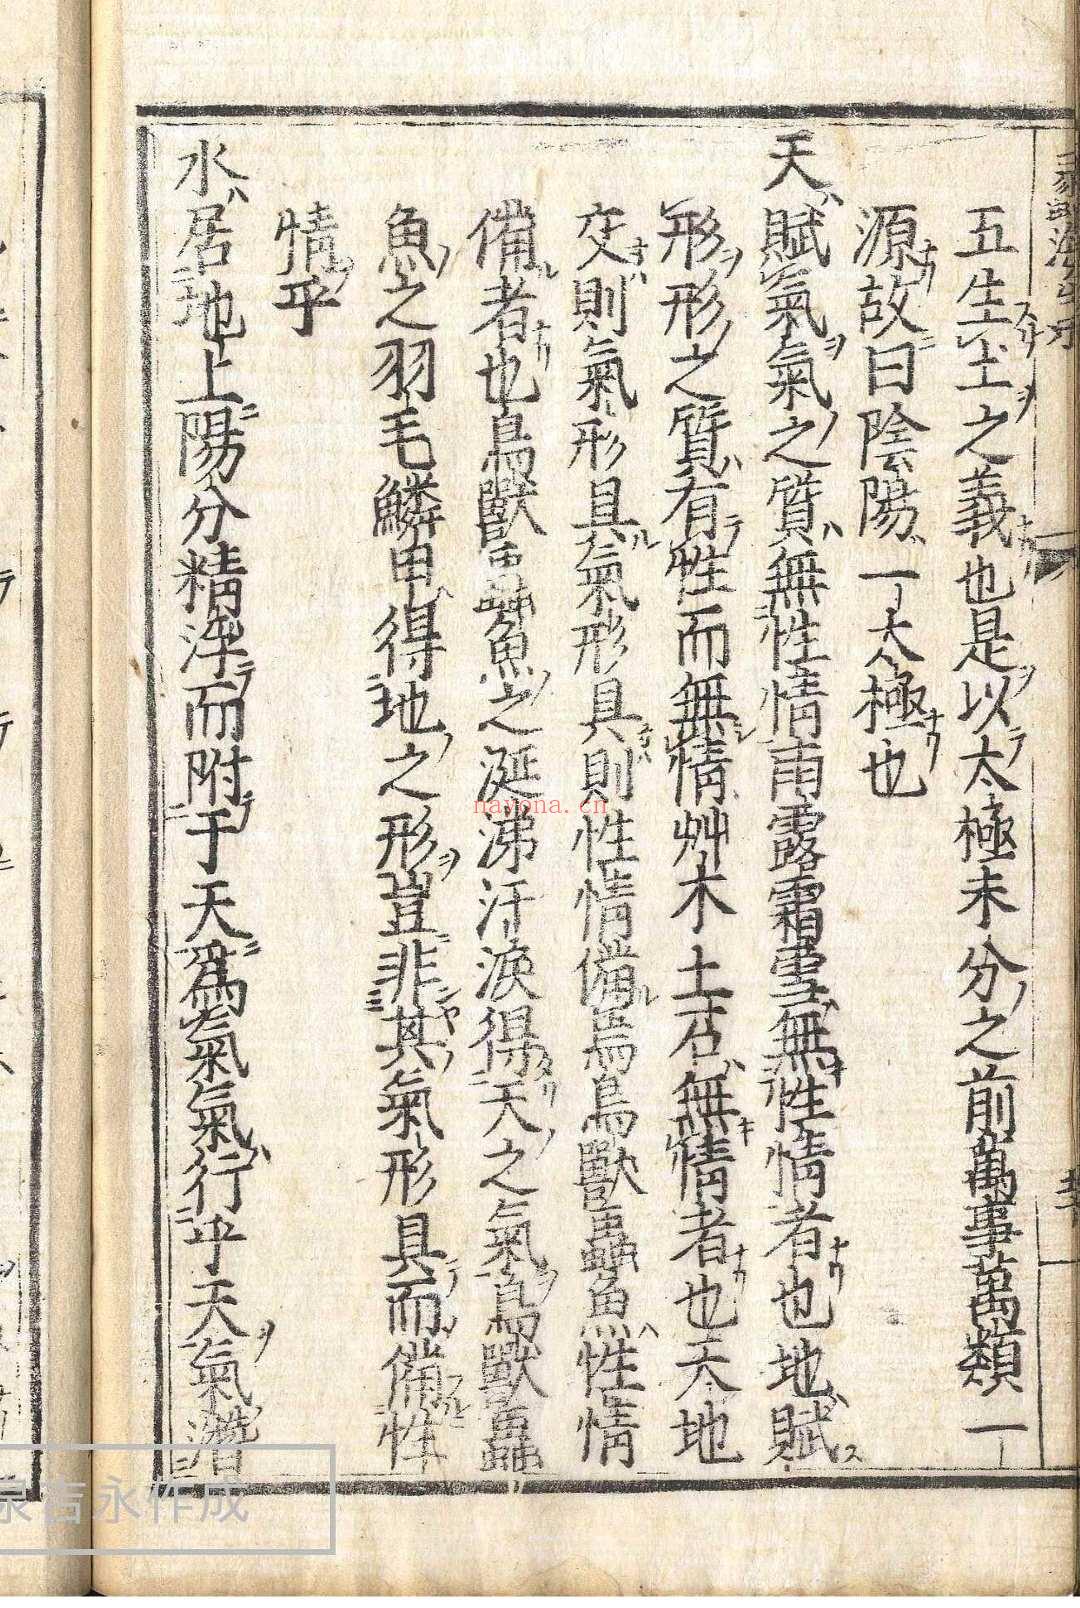 五生土之義也是以太極未分之前萬事萬類一
源故曰陰陽一太極也
天賦氣氣之質無性情雨露霜雪無性情者也地賦
形形之質有性而無情艸木土石無情者也天地
交則氣形具氣形具則性情備焉鳥獸蟲魚性情
備者也鳥獸蟲魚之涎沸汗淚得天之氣鳥獸蟲
魚之羽毛鱗甲得地之形豈非其氣形具而備性
情乎
水居地上陽分精浮而附于天爲氣氣行乎天氣潛
nayona.cn
泉吉永作成